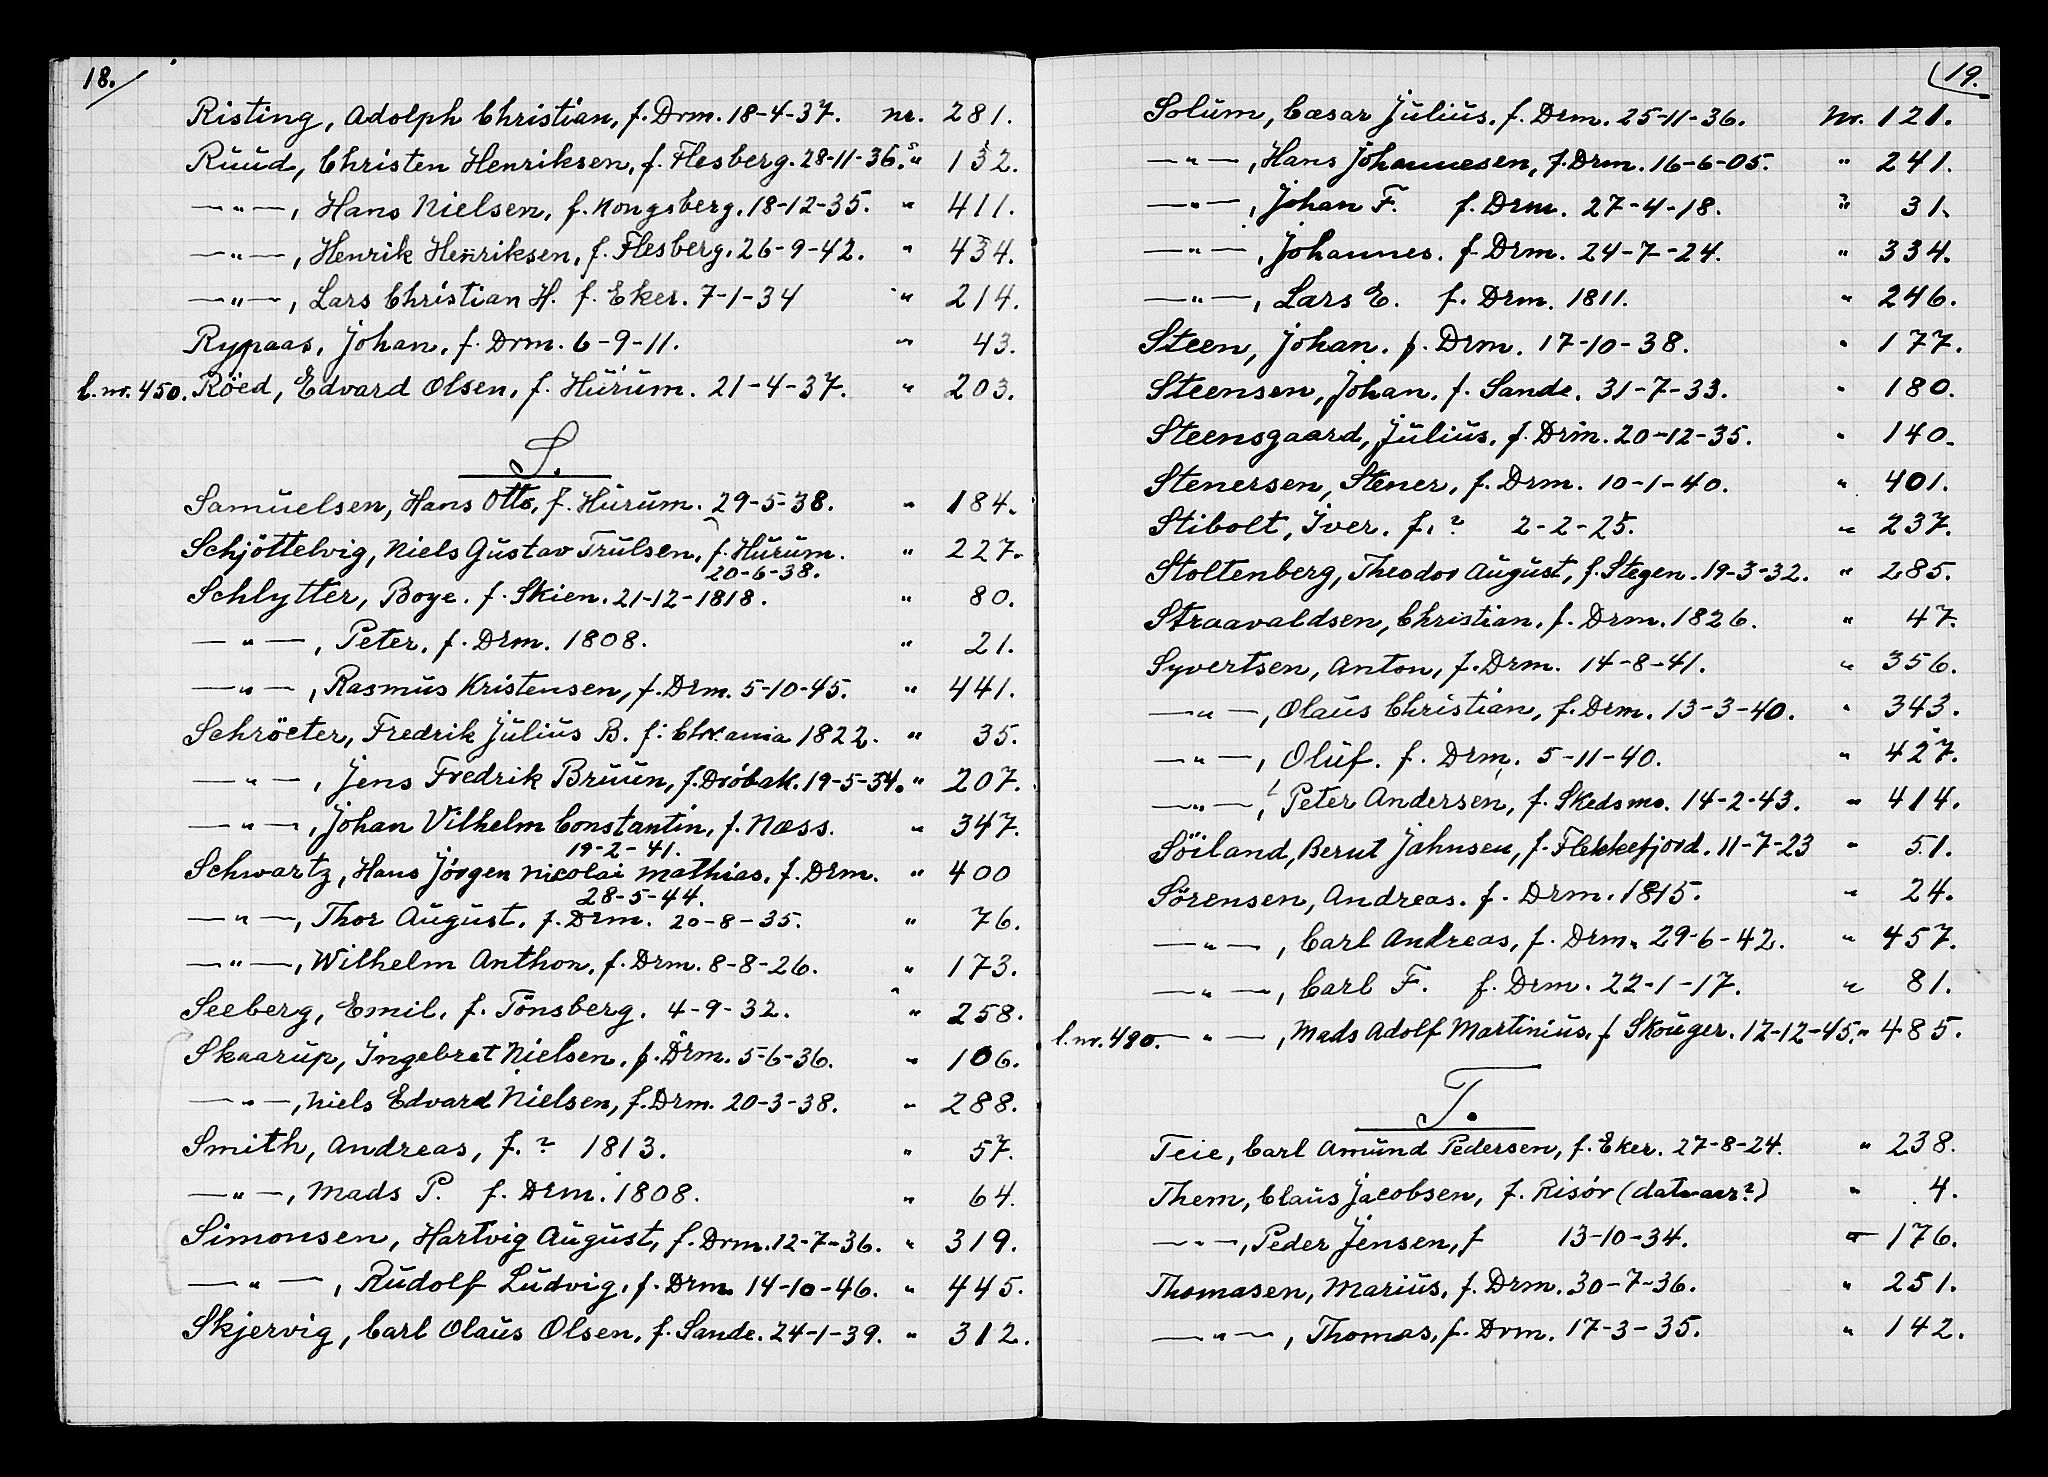 18.
Risting, Adolph Christian, f. Drm. 18-4-37. nr. 281.
Ruud, Christen Henriksen, f. Flesberg. 28-11-36. " 132.
—"—, Hans Nielsen, f. Kongsberg. 18-12-35. " 411.
—"—, Henrik Henriksen, f. Flesberg. 26-9-42. " 434.
—"—, Lars Christian H. f. Eker. 7-1-34 " 214.
Rypaas, Johan, f. Drm. 6-9-11. " 43.
l. nr. 450. Röed, Edvard Olsen, f. Hurum. 21-4-37. " 203.
S.
Samuelsen, Hans Otto, f. Hurum. 29-5-38. " 184.
Schjöttelvig, Niels Gustav Trulsen, f. Hurum. " 227.
20-6-38.
Schlytter, Boye. f. Skien. 21-12-1818. " 80.
—"—, Peter, f. Drm. 1808. " 21.
—"—, Rasmus Kristensen, f. Drm. 5-10-45. " 441.
Schröeter, Fredrik Julius B. f. Chr.ania 1822. " 35.
—"—, Jens Fredrik Bruun, f. Dröbak. 19-5-34. " 207.
—"—, Johan Vilhelm Constantin, f. Næss. " 347.
19-2-41.
Schwartz, Hans Jörgen Nicolai Mathias, f. Drm. " 400
28-5-44.
—"—, Thor August, f. Drm. 20-8-35. " 76.
—"—, Wilhelm Anthon, f. Drm. 8-8-26. " 173.
Seeberg, Emil, f. Tönsberg. 4-9-32. " 258.
Skaarup, Ingebret Nielsen, f. Drm. 5-6-36. " 106.
—"—, Niels Edvard Nielsen, f. Drm. 20-3-38. " 288.
Smith, Andreas, f. ? 1813. " 57.
—"—, Mads P. f. Drm. 1808. " 64.
Simonsen, Hartvig August, f. Drm. 12-7-36. " 319.
—"—, Rudolf Ludvig, f. Drm. 14-10-46. " 445.
Skjervig, Carl Olaus Olsen, f. Sande. 24-1-39. " 312.
19.
Solum, Cæsar Julius. f. Drm. 25-11-36. Nr. 121.
—"—, Hans Johannesen, f. Drm. 16-6-05. " 241.
—"—, Johan F. f. Drm. 27-4-18. " 31.
—"—, Johannes. f. Drm. 24-7-24. " 334.
—"—, Lars E. f. Drm. 1811. " 246.
Steen, Johan. f. Drm. 17-10-38. " 177.
Steensen, Johan. f. Sande. 31-7-33. " 180.
Steensgaard, Julius, f. Drm. 20-12-35. " 140.
Stenersen, Stener, f. Drm. 10-1-40. " 401.
Stibolt, Iver. f. ? 2-2-25. " 237.
Stoltenberg, Theodor August, f. Stegen. 19-3-32. " 285.
Straavaldsen, Christian, f. Drm. 1826. " 47.
Syvertsen, Anton, f. Drm. 14-8-41. " 356.
—"—, Olaus Christian, f. Drm. 13-3-40. " 343.
—"—, Oluf. f. Drm. 5-11-40. " 427.
—"—, Peter Andersen, f. Skedsmo. 14-2-43. " 414.
Söiland, Bernt Jahnsen, f. Flekkefjord. 11-7-23 " 51.
Sörensen, Andreas. f. Drm. 1815. " 24.
—"—, Carl Andreas, f. Drm. 29-6-42. " 457.
—"—, Carl F. f. Drm. 22-1-17. " 81.
l. nr. 490. —"—, Mads Adolf Martinius, f Skouger. 12-12-45. " 485.
T.
Teie, Carl Amund Pedersen, f. Eker. 27-8-24. " 238.
Them, Claus Jacobsen, f. Risör (dat-aar?) " 4.
—"—, Peder Jensen, f 13-10-34. " 176.
Thomasen, Marius, f. Drm. 30-7-36. " 251.
—"—, Thomas, f. Drm. 17-3-35. " 142.